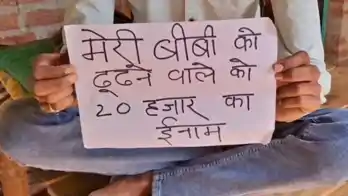 मेरी बीबी को
ढूढने वाले को
20 हजार का
ईनाम